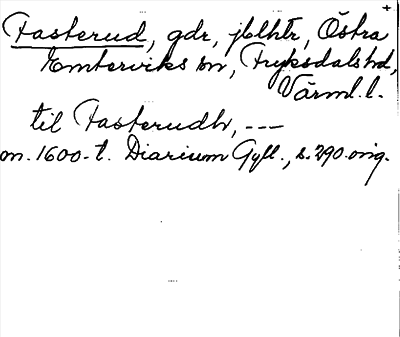 Fasterud, gdr, jblhtr, Östra
Emterviks sn, Fryksdals hd,
Värml. l.
til Fasterudh, ---
m. 1600-t. Diarium Gyll., s. 290. orig.